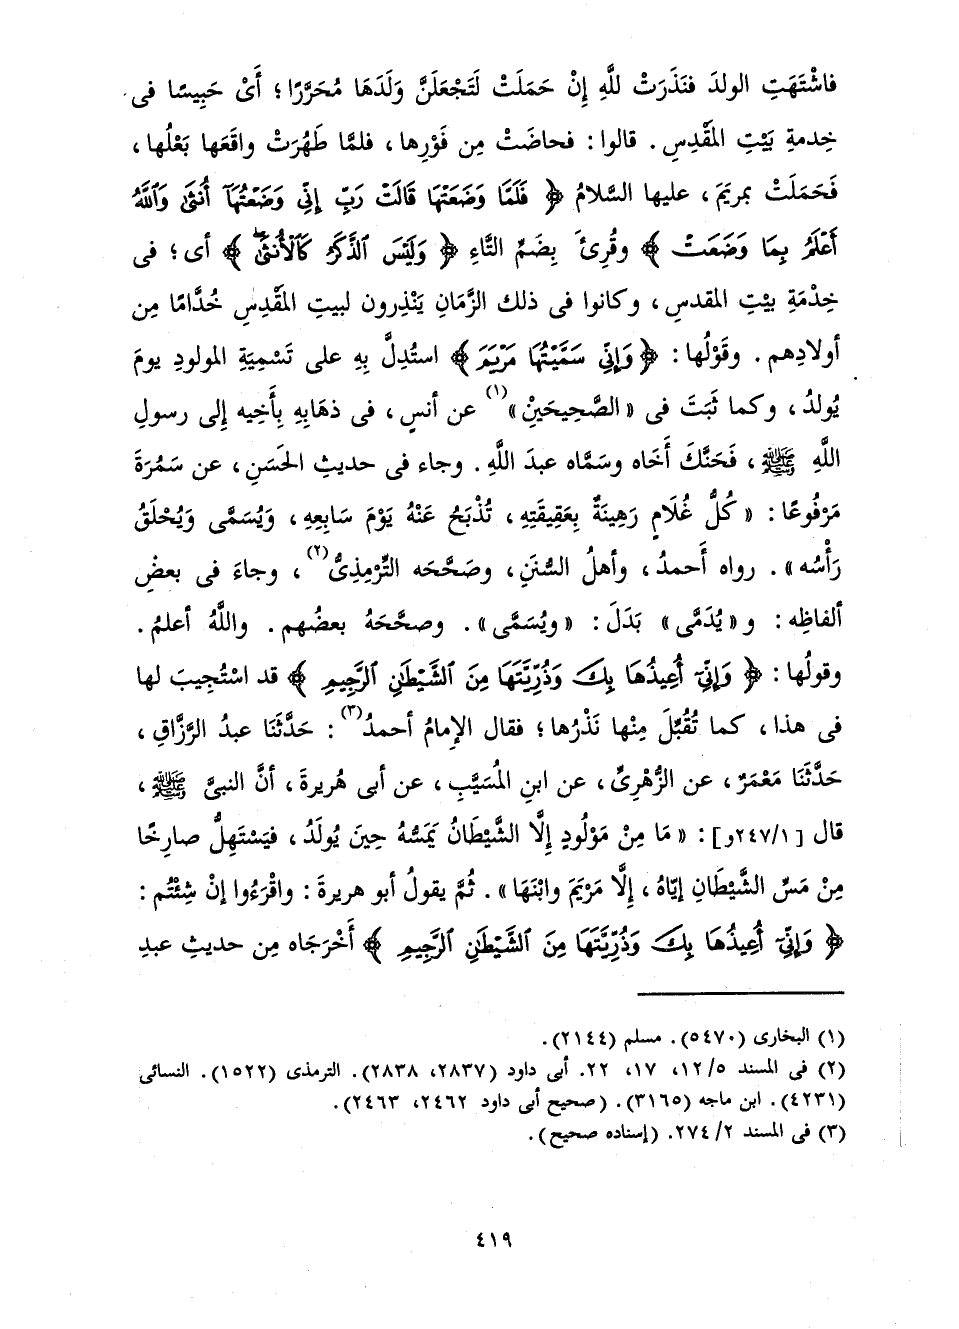 فاشْتَهَتِ الولدَ فنَذَرَتْ للَّهِ إِنْ حَمَلَتْ لَتَجْعَلَنَّ وَلَدَهَا مُحَرَّرًا ؛ أَىْ حَبِيسًا فى
خِدمةِ بَيْتِ المَقْدِسِ . قالوا : فحاضَتْ مِن فَوْرِها ، فلمَّا طَهُرَتْ واقَعَها بَعْلُها ،
فَحَمَلَتْ بمريَمَ ، عليها السَّلامُ ﴿ فَلَمَّا وَضَعَتْهَا قَالَتْ رَبِّ إِنِّى وَضَعْتُهَآ أُنثَىٰ وَٱللَّهُ
أَعْلَمُ بِمَا وَضَعَتْ ﴾ وقُرِئَ بِضَمِّ التَّاءِ ﴿ وَلَيْسَ ٱلذَّكَرُ كَٱلْأُنثَىٰ ﴾ أى ؛ فى
خِدْمَةِ بيْتِ المقدسِ ، وكانوا فى ذلك الزَّمَانِ يَنْذِرون لبيتِ المَقْدِسِ خُدَّامًا مِن
أولادِهم . وقَوْلُها : ﴿ وَإِنِّى سَمَّيْتُهَا مَرْيَمَ ﴾ استُدِلَّ بِهِ على تَسْمِيَةِ المولودِ يومَ
يُولدُ ، وكما ثَبَتَ فى « الصَّحِيحَيْنِ »(١) عن أنسٍ ، فى ذهَابِهِ بِأَخِيه إلى رسولِ
اللَّهِ ﷺ ، فَحَنَّكَ أَخَاه وسَمَّاه عبدَ اللَّهِ . وجاء فى حديثِ الحَسَنِ ، عن سَمُرَةَ
مَرْفُوعًا : « كُلُّ غُلَامٍ رَهِينَةٌ بِعَقِيقَتِهِ ، تُذْبَحُ عَنْهُ يَوْمَ سَابِعِهِ ، وَيُسَمَّى وَيُحْلَقُ
رَأْسُه » . رواه أَحمدُ ، وأهلُ السُّنَنِ ، وصَحَّحَه التِّرْمِذِىُّ(٢) ، وجاءَ فى بعضِ
ألفاظِه : و « يُدَمَّى » بَدَلَ : « ويُسَمَّى » . وصحَّحَهُ بعضُهم . واللَّهُ أعلمُ .
وقولُها : ﴿ وَإِنِّىٓ أُعِيذُهَا بِكَ وَذُرِّيَّتَهَا مِنَ ٱلشَّيْطَٰنِ ٱلرَّجِيمِ ﴾ قد اسْتُجِيبَ لها
فى هذا ، كما تُقُبِّلَ مِنْها نَذْرُها ؛ فقال الإمامُ أحمدُ(٣) : حَدَّثَنَا عبدُ الرَّزَّاقِ ،
حَدَّثَنَا مَعْمَرٌ ، عن الزُّهْرِىِّ ، عن ابنِ المُسَيَّبِ ، عن أبى هُريرةَ ، أنَّ النبىَّ ﷺ ،
قال [ ٢٤٧/١و ] : « مَا مِنْ مَوْلُودٍ إِلَّا الشَّيْطَانُ يَمَسُّهُ حِينَ يُولَدُ ، فيَسْتَهِلُّ صارِخًا
مِنْ مَسِّ الشَّيْطَانِ إيَّاهُ ، إِلَّا مَرْيَمَ وابْنَهَا » . ثُمَّ يقولُ أبو هريرةَ : واقْرَءُوا إنْ شِئْتُم :
﴿ وَإِنِّىٓ أُعِيذُهَا بِكَ وَذُرِّيَّتَهَا مِنَ ٱلشَّيْطَٰنِ ٱلرَّجِيمِ ﴾ أَخْرَجَاه مِن حديثِ عبدِ
(١) البخارى (٥٤٧٠) . مسلم (٢١٤٤) .
(٢) فى المسند ١٢/٥، ١٧، ٢٢. أبى داود (٢٨٣٧، ٢٨٣٨). الترمذى (١٥٢٢). النسائى
(٤٢٣١) . ابن ماجه (٣١٦٥). (صحيح أبى داود ٢٤٦٢، ٢٤٦٣).
(٣) فى المسند ٢٧٤/٢. (إسناده صحيح) .
٤١٩